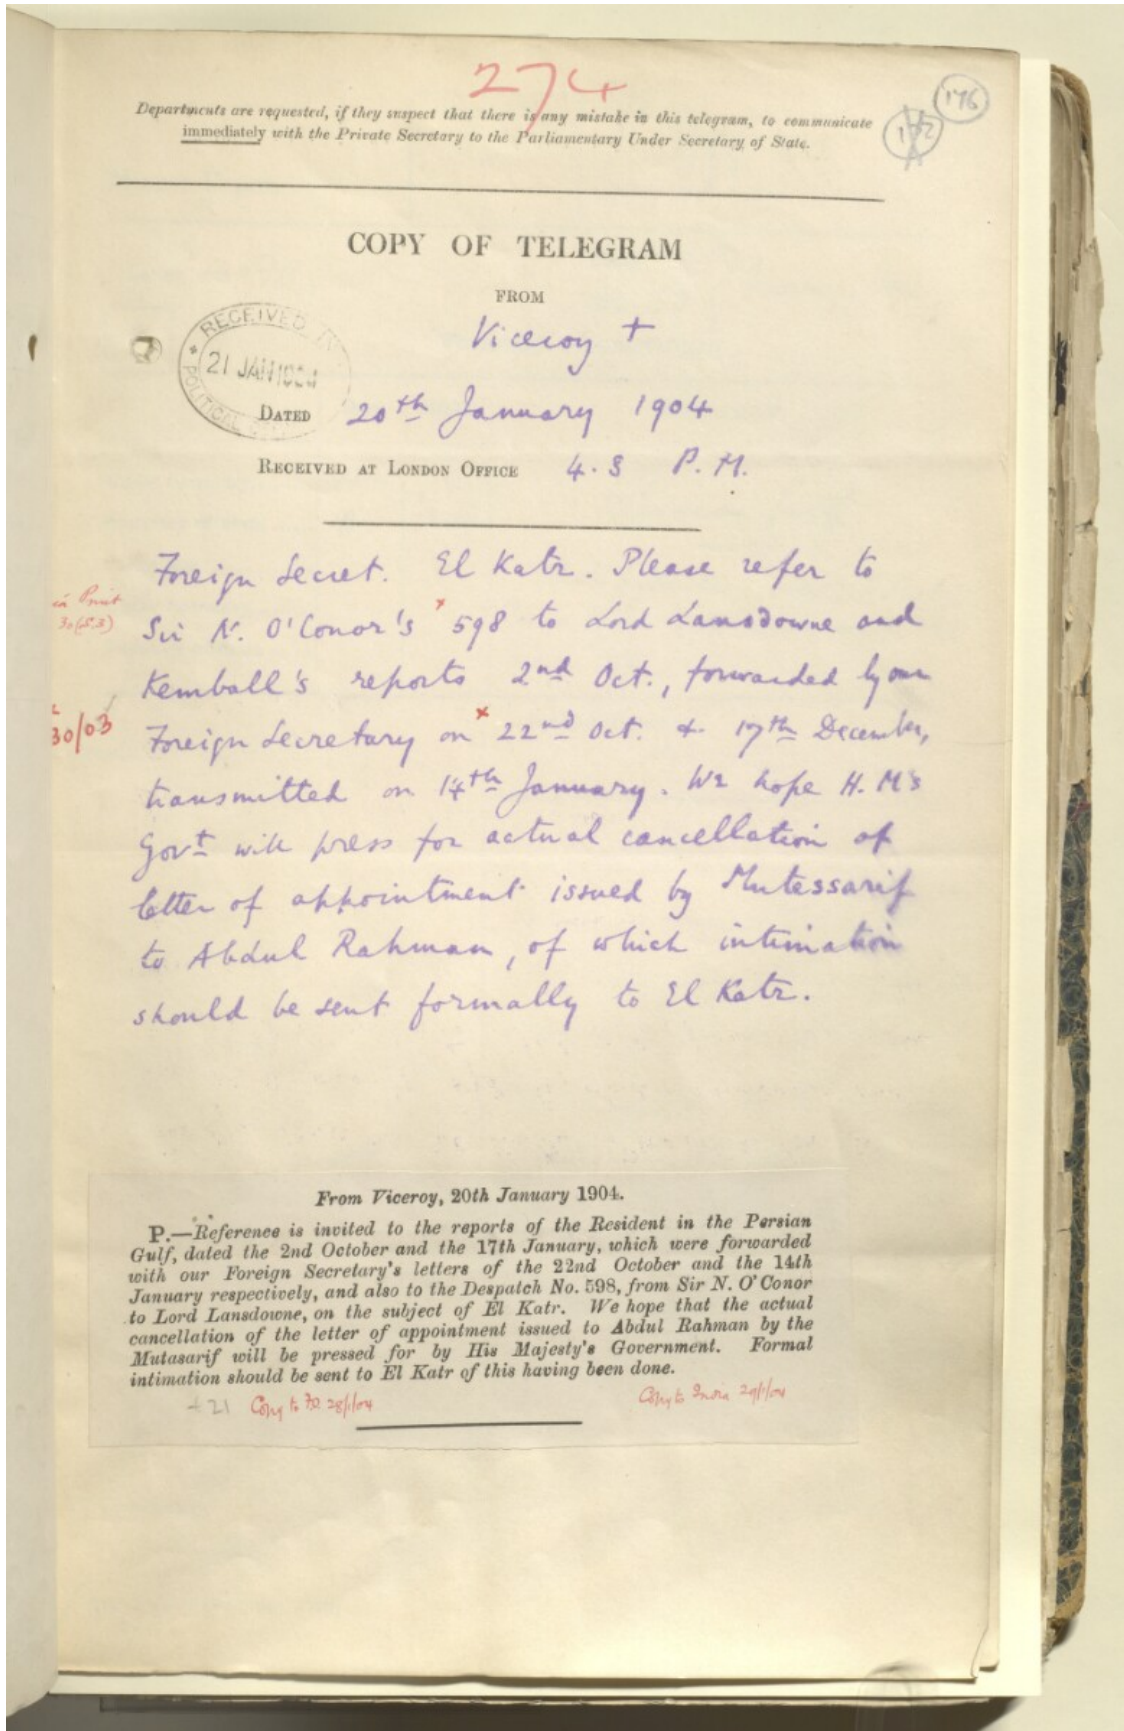 274
176
Departments are requested, if they suspect that there is any mistake in this telegram, to communicate
immediately with the Private Secretary to the Parliamentary Under Secretary of State.
COPY OF TELEGRAM
FROM
Viceroy +
RECEIVED IN
21 JAN 1904
POLITICAL
DATED 20th January 1904
RECEIVED AT LONDON OFFICE 4.8 P.M.
Foreign Secret. El Katr. Please refer to
in Print
30(5.3)
Sir N. O'Conor's x 598 to Lord Lansdowne and
Kemball's reports 2nd Oct., forwarded by our
30/03
Foreign Secretary on x 22nd Oct. & 17th December,
transmitted on 14th January. We hope H. M's
Govt will press for actual cancellation of
letter of appointment issued by Mutessarif
to Abdul Rahman, of which intimation
should be sent formally to El Katr.
From Viceroy, 20th January 1904.
P.—Reference is invited to the reports of the Resident in the Persian
Gulf, dated the 2nd October and the 17th January, which were forwarded
with our Foreign Secretary's letters of the 22nd October and the 14th
January respectively, and also to the Despatch No. 598, from Sir N. O'Conor
to Lord Lansdowne, on the subject of El Katr. We hope that the actual
cancellation of the letter of appointment issued to Abdul Rahman by the
Mutasarif will be pressed for by His Majesty's Government. Formal
intimation should be sent to El Katr of this having been done.
21 Copy to F.O. 28/1/04 Copy to India 29/1/04